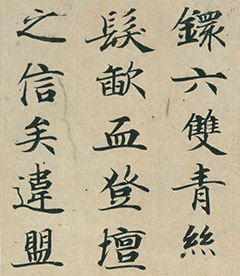 鐶六雙青絲
髮歃血登壇
之信矣違盟